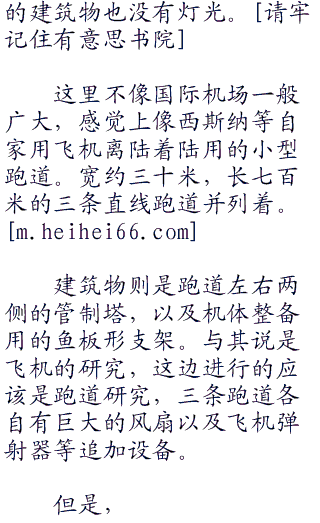 的建筑物也没有灯光。[请牢
记住有意思书院]
这里不像国际机场一般
广大，感觉上像西斯纳等自
家用飞机离陆着陆用的小型
跑道。宽约三十米，长七百
米的三条直线跑道并列着。
[m.heihei66.com]
建筑物则是跑道左右两
侧的管制塔，以及机体整备
用的鱼板形支架。与其说是
飞机的研究，这边进行的应
该是跑道研究，三条跑道各
自有巨大的风扇以及飞机弹
射器等追加设备。
但是，